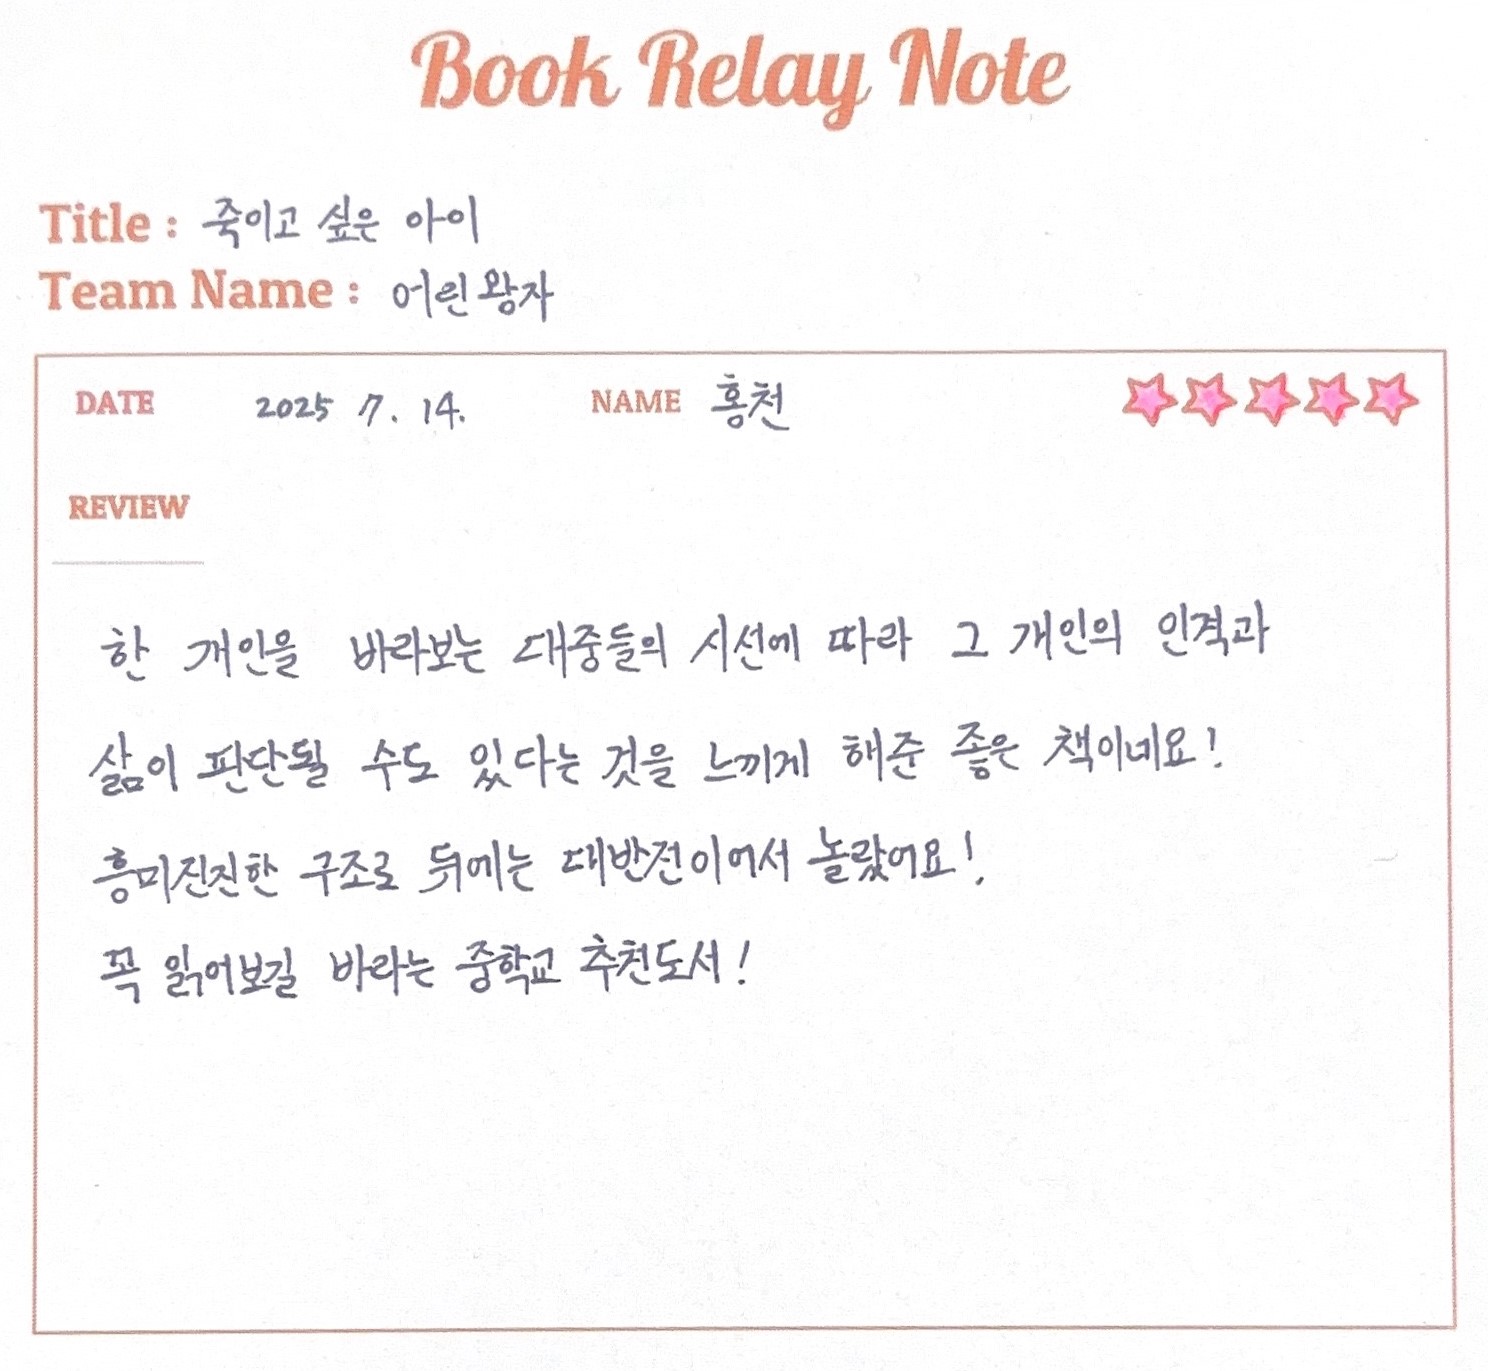 Book Relay Note
Title : 죽이고 싶은 아이
Team Name : 어린왕자
DATE 2025 7. 14. NAME 홍천
REVIEW
한 개인을 바라보는 대중들의 시선에 따라 그 개인의 인격과
삶이 판단될 수도 있다는 것을 느끼게 해준 좋은 책이네요!
흥미진진한 구조로 뒤에는 대반전이어서 놀랐어요!
꼭 읽어보길 바라는 중학교 추천도서!